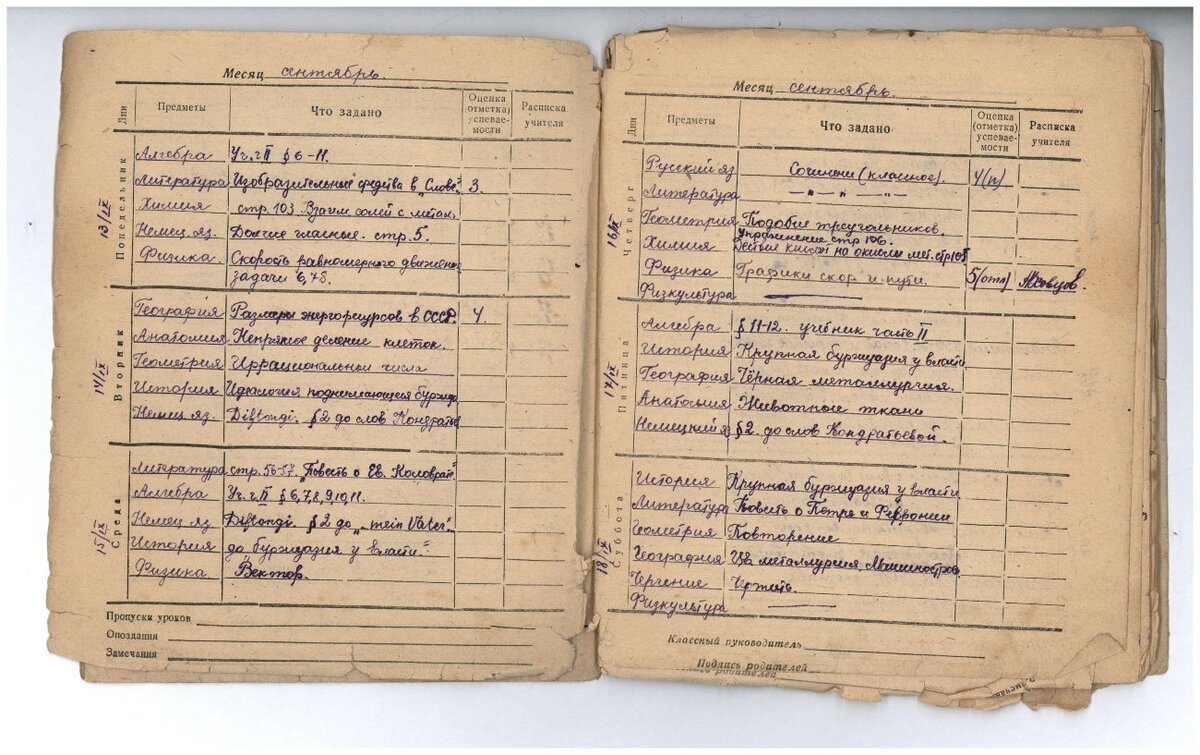 Месяц сентябрь.
Дни Предметы Что задано Оценка (отметка) успеваемости Расписка учителя
13/IX Понедельник
Алгебра Уч. ч II § 6-11.
Литература Изобразительные средства в „Слове" 3.
Химия стр. 103 Взаим. солей с метал.
Немец. яз. Долгие гласные. стр 5.
Физика. Скорость равномерного движения
задачи 6,78.
14/IX Вторник
География Размеры энергоресурсов в СССР. 4
Анатомия Непрямое деление клеток.
Геометрия Иррациональн числа
История Идеология поднимающейся буржуаз
Немец. яз. Diftongi. § 2 до слов Кондратье
15/IX Среда
Литература стр. 56-57 „Повесть о Ев. Коловрате"
Алгебра Уч. ч II § 6,7,8,9,10,11.
Немец яз Diftongi. § 2 до „mein Vater".
История до „буржуазия у власти"
Физика Вектор.
Пропуски уроков
Опоздания
Замечания
Месяц сентябрь.
Дни Предметы Что задано Оценка (отметка) успеваемости Расписка учителя
16/IX Четверг
Русский яз Сочинени (классное). 4(п)
Литература —"— „ —"—
Геометрия Подобие треугольников.
Упражнение стр 106.
Химия Действ кислот на окислы мет. стр 105
Физика Графики скор и пути. 5(отл)
Физкультура
17/IX Пятница
Алгебра § 11-12. учебник часть II
История Крупная буржуазия у власти
География Чёрная металлургия.
Анатомия Животные ткани
Немецкий яз § 2. до слов Кондратьевой.
18/IX Суббота
История Крупная буржуазия у власти
Литература Повесть о Петре и Февронии
Геометрия Повторение
География Цв. металлургия. Машиностроен
Черчение Чертить.
Физкультура
Классный руководитель
Подпись родителей
родителей